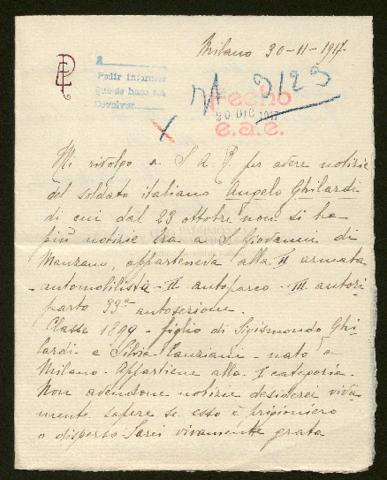 Milano 30-11-1917.
Pedir informes
que se hace con
Devolver
2129
Fecho
30 DIC 1917
e.a.e.
Mi rivolgo a S A R per avere notizie
del soldato italiano Angelo Ghilardi
di cui dal 29 ottobre non si ha
più notizie Era a S Giovanni di
Manzano, apparteneva alla II armata
automobilista - II autoparco - III autori-
parto 33ª autosezione.
Classe 1899 - figlio di Sigismondo Ghi-
lardi e Silvia - nato a
Milano. Appartiene alla I categoria.
Non avendone notizie desidererei viva-
mente sapere se esso è prigioniero
o disperso Sarei vivamente grata